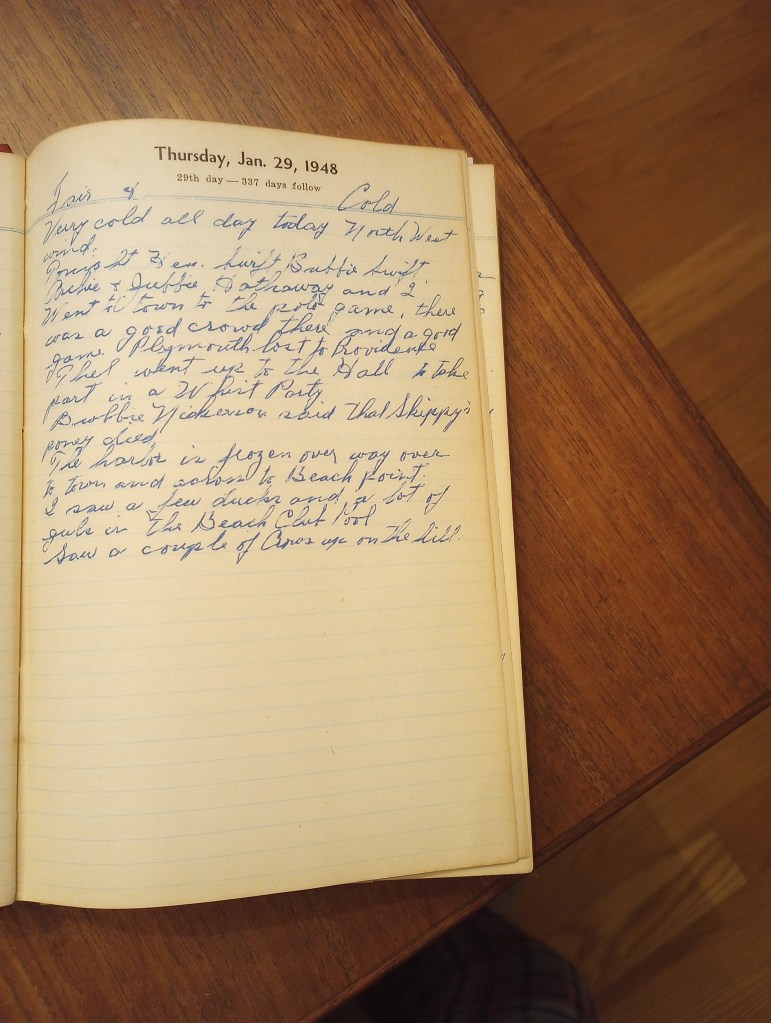 Thursday, Jan. 29, 1948
29th day — 337 days follow
Fair & Cold
Very cold all day today North West
wind.
Swift Bubbie Swift,
& Hathaway and I
Went to town to the polo game, there
was a good crowd there and a good
game Plymouth lost to Providence
went up to the Hall to take
part in a Whist Party
Nickerson said that Skippy's
poney died
The harbor is frozen over way over
to town and across to Beach point.
I saw a few ducks and a lot of
gulls in the Beach Club Pool
Saw a couple of Crows up on the hill.